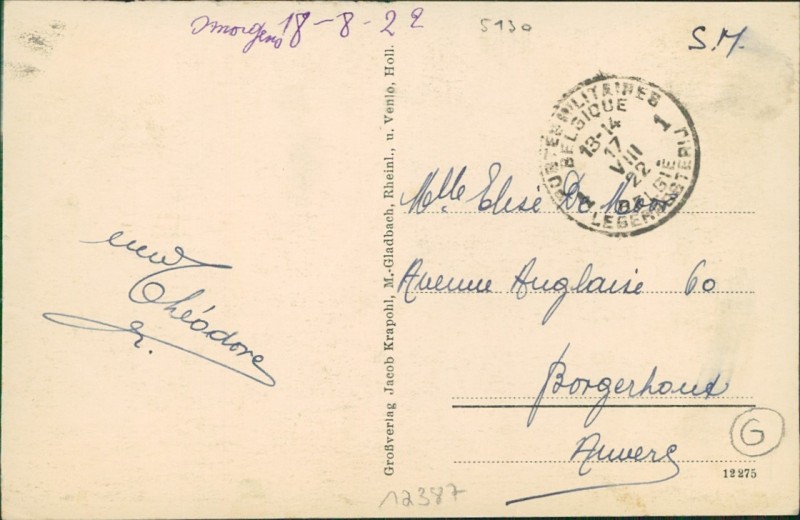 18-8-22
5130
S.M.
POSTES MILITAIRES
BELGIQUE
13-14
17
VIII
22
BELGIË
LEGERPOSTERIJ
1 1
Mlle Elise De
Avenue Anglaise 60
Borgerhout
Anvers
Théodore
Großverlag Jacob Krapohl, M.-Gladbach, Rheinl., u. Venlo, Holl.
G
12275
12387